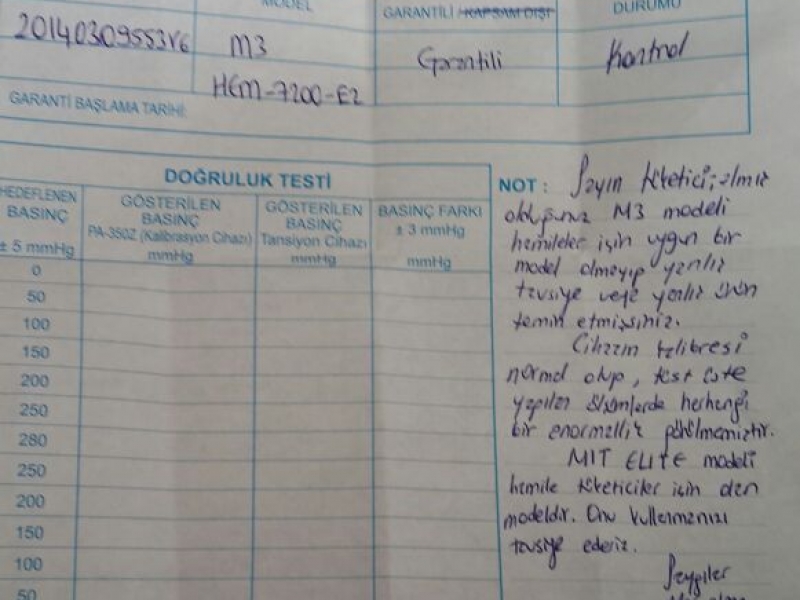 MODEL
GARANTİLİ / KAPSAM DIŞI
DURUMU
M3
HEM-7200-E2
Garantili
Kontrol
GARANTİ BAŞLAMA TARİHİ:
DOĞRULUK TESTİ
HEDEFLENEN BASINÇ ± 5 mmHg
GÖSTERİLEN BASINÇ PA-350Z (Kalibrasyon Cihazı) mmHg
GÖSTERİLEN BASINÇ Tansiyon Cihazı mmHg
BASINÇ FARKI ± 3 mmHg mmHg
0
50
100
150
200
250
280
250
200
150
100
50
NOT : Sayın tüketici; almış
olduğunuz M3 modeli
hamileler için uygun bir
model olmayıp yanlış
tavsiye veya yanlış ürün
temin etmişsiniz.
Cihazın kalibresi
normal olup, test
yapılan ölçümlerde herhangi
bir anormallik görülmemiştir.
MIT ELITE modeli
hamile tüketiciler için olan
modeldir. Onu kullanmanızı
tavsiye ederiz.
Saygılar